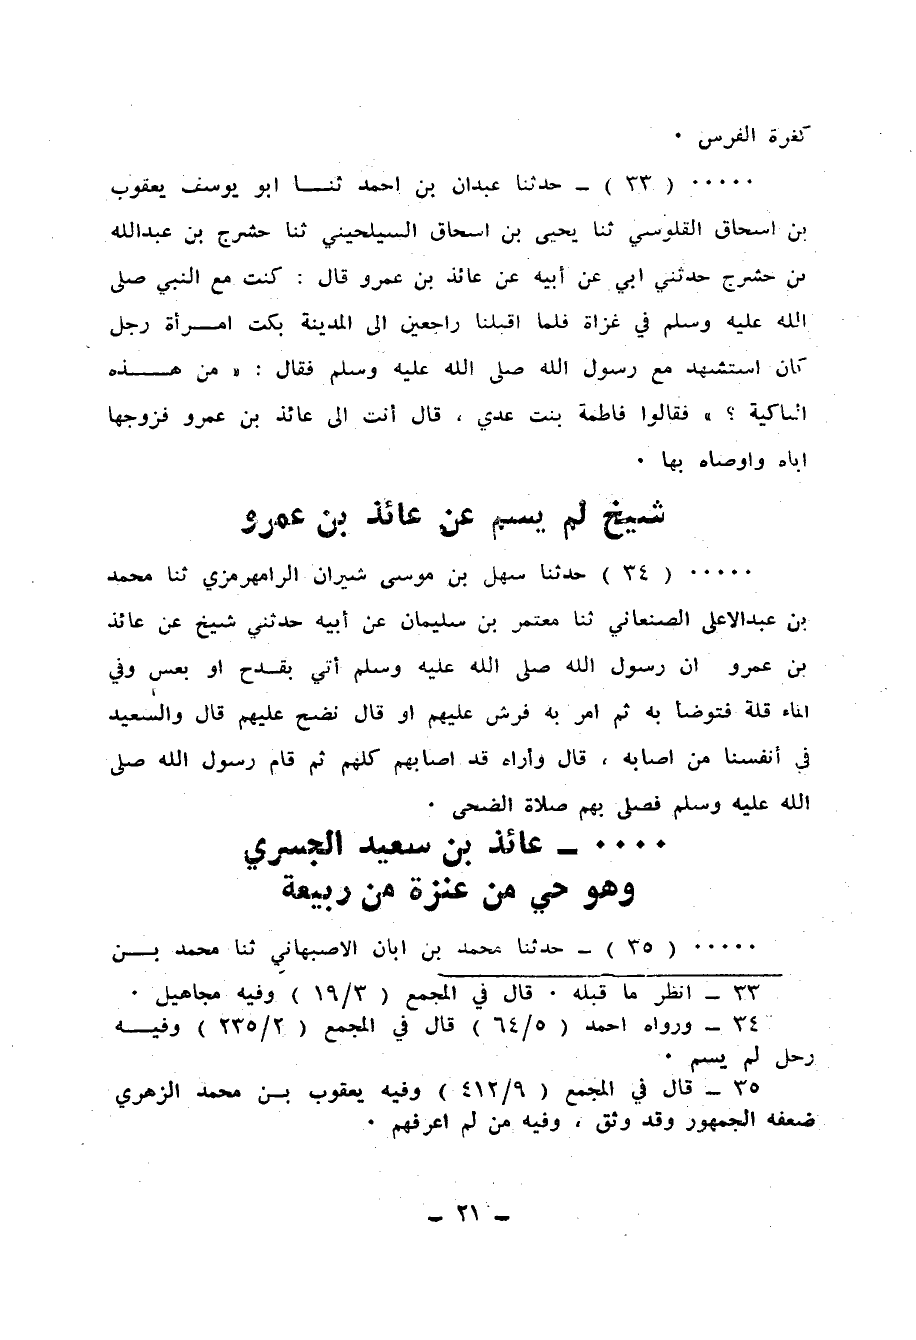 كغرة الفرس ٠
٠٠٠٠٠ ( ٣٣ ) ـ حدثنا عبدان بن احمد ثنــا ابو يوسف يعقوب
بن اسحاق القلوسي ثنا يحيى بن اسحاق السيلحيني ثنا حشرج بن عبدالله
بن حشرج حدثني ابي عن أبيه عن عائذ بن عمرو قال : كنت مع النبي صلى
الله عليه وسلم في غزاة فلما اقبلنا راجعين الى المدينة بكت امــرأة رجل
كان استشهد مع رسول الله صلى الله عليه وسلم فقال : « من هــــذه
الباكية ؟ » فقالوا فاطمة بنت عدي ، قال أنت الى عائذ بن عمرو فزوجها
اياه واوصاه بها ٠
شيخ لم يسم عن عائذ بن عمرو
٠٠٠٠٠ ( ٣٤ ) حدثنا سهل بن موسى شيران الرامهرمزي ثنا محمد
بن عبدالاعلى الصنعاني ثنا معتمر بن سليمان عن أبيه حدثني شيخ عن عائذ
بن عمرو ان رسول الله صلى الله عليه وسلم أتي بقــدح او بعس وفي
الماء قلة فتوضأ به ثم امر به فرش عليهم او قال نضح عليهم قال والسعيد
في أنفسنا من اصابه ، قال وأراه قد اصابهم كلهم ثم قام رسول الله صلى
الله عليه وسلم فصلى بهم صلاة الضحى ٠
٠٠٠٠ ـ عائذ بن سعيد الجسري
وهو حي من عنزة من ربيعة
٠٠٠٠٠ ( ٣٥ ) ـ حدثنا محمد بن ابان الاصبهاني ثنا محمد بــن
٣٣ ـ انظر ما قبله ٠ قال في المجمع ( ١٩/٣ ) وفيه مجاهيل ٠
٣٤ ـ ورواه احمد ( ٦٤/٥ ) قال في المجمع ( ٢٣٥/٢ ) وفيــه
رجل لم يسم ٠
٣٥ ـ قال في المجمع ( ٤١٢/٩ ) وفيه يعقوب بــن محمد الزهري
ضعفه الجمهور وقد وثق ، وفيه من لم اعرفهم ٠
ـ ٢١ ـ